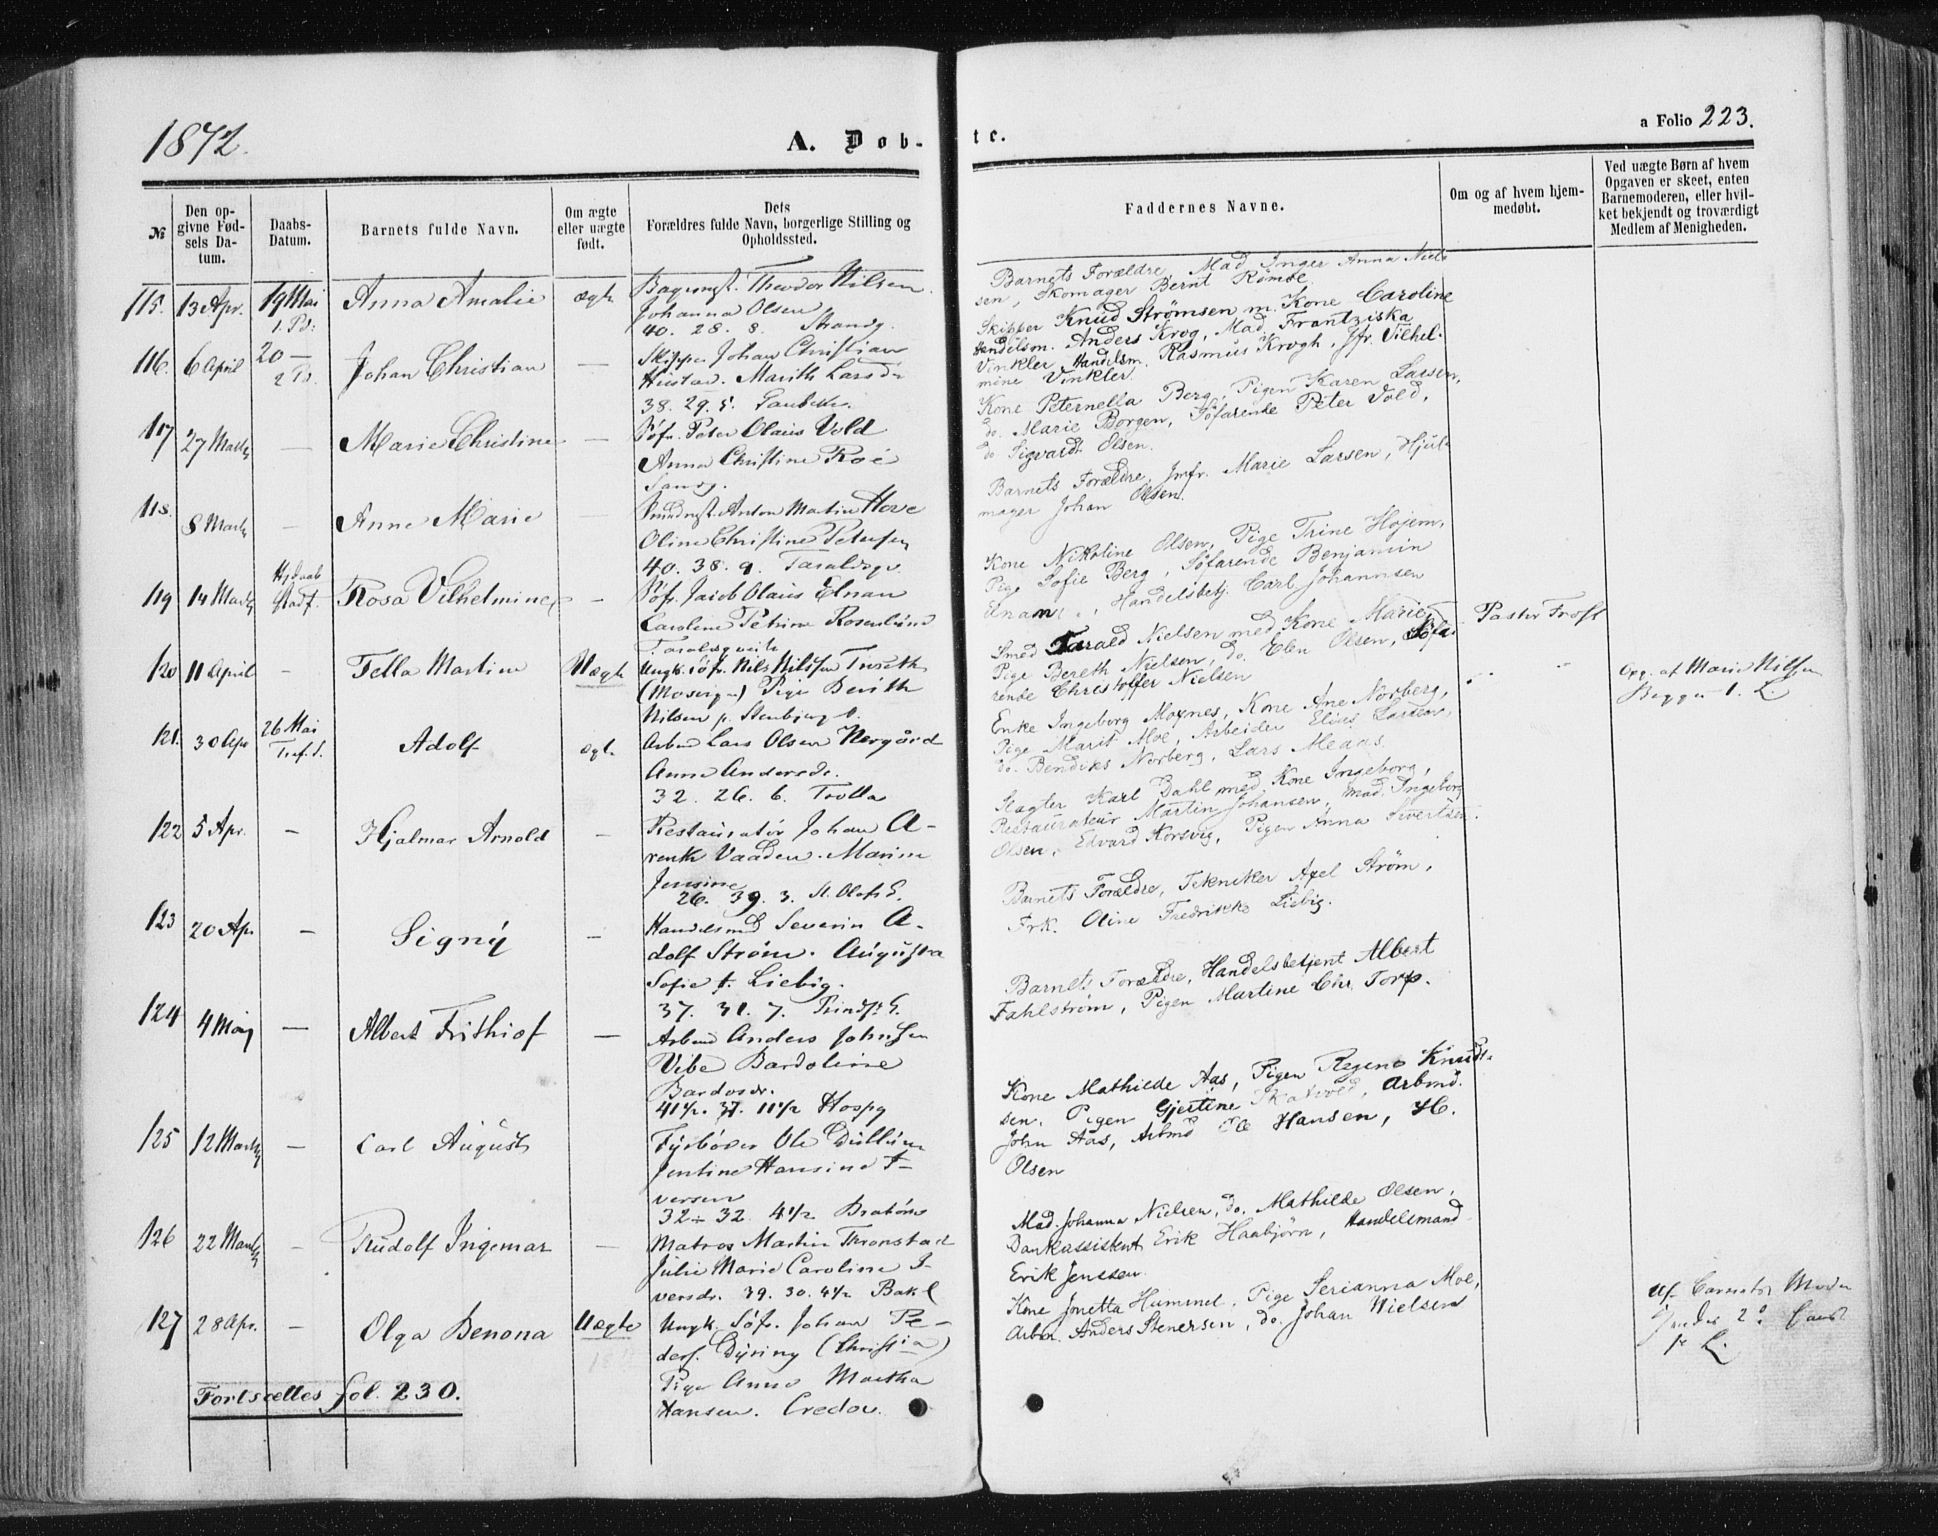 1872.
A. Døb-
te.
a Folio 223.
№
Den op-
givne Fød-
sels Da-
tum.
Daabs-
Datum.
Barnets fulde Navn.
Om ægte
eller uægte
født.
Dets
Forældres fulde Navn, borgerlige Stilling og
Opholdssted.
Faddernes Navne.
Om og af hvem hjem-
medøbt.
Ved uægte Børn af hvem
Opgaven er skeet, enten
Barnemoderen, eller hvil-
ket bekjendt og troværdigt
Medlem af Menigheden.
115. 13 Apr. 19 Mai
Anna Amalie ægte
Theodor Nilsen
Johanna Olsen
40. 28. 8. Strandg.
Barnets Forældre, Mad. Inger Anna Niel-
sen, Skomager Bernt
116. 6 April 20 —
Johan Christian —
Skipper Johan Christian
Marith Larsdr
38. 29. 5.
Skipper Knud Strømsen m. Kone Caroline
Handelsm. Anders Krog, Mad. Frantziska
Vinkler, Handelsm. Rasmus Krogh, Jfr. Vilhel-
mine Vinkler.
117 27 Marts —
Marie Christine —
Søfr. Peter Olaus Vold
Anna Christine Roe
Kone Peternella Berg, Pigen Karen Larsen,
do. Marie Borgen, Søfarende Peter Vold,
do Sigvardt Olsen.
118. 8 Marts —
Anne Marie —
Anton Martin Hove
Oline Christine Petersen
40. 38. 9.
Barnets Forældre, Jmfr. Marie Larsen, Hjul-
mager Johan Olsen.
119 14 Marts Hjdaab
Stadf.
Rosa Vilhelmine —
Søfr. Jacob Olaus Elnan
Caroline Petrine Rosenlund
Kone Nikoline Olsen, Pige Trine Højem,
Pige Sofie Berg, Søfarende Benjamin
Elnan, Handelsbetj. Carl Johannsen
Pastor Frost
120 11 April —
Tella Martine Uægte
Ungk. Søfr. Nils Nilssen
Pige Berith
Nilsen p.
Smed Tarald Nielsen med Kone Marie,
Pige Bereth Nielsen, do. Elen Olsen, Søfa-
rende Christoffer Nielsen
Opg. af Marie Nilsen
121. 30 Apr 26 Mai
Adolf ægt.
Arbmd Lars Olsen Nergård
Anna Andersdr.
32. 26. 6. Trolla
Enke Ingeborg Moxnes, Kone Ane Norberg,
Pige Marit Moe, Arbeider Elius Larsen,
do. Bendiks Norberg, Lars Meaas.
122 5 Apr. —
Hjalmar Arnold —
Restauratør Johan A-
rentz Vaaden. Marine
Jensine
26. 39. 3. St. Olafs G.
Slagter Karl Dahl med Kone Ingeborg,
Restaurateur Martin Johansen, Mad. Ingeborg
Olsen, Edvard Korsvig, Pigen Anna Sivertsen.
123 20 Apr —
Signy —
Handelsmd Severin A-
dolf Strøm. Augusta
Sofie f. Liebig.
37. 31. 7. Prindss G.
Barnets Forældre, Tekniker Axel Strøm,
Frk. Oline Fredrikke Liebig.
124 4 Mai —
Albert Frithiof —
Arbmd Anders Johnsen
Vibe Bardoline
Bardosdr.
41½. 37. 11½ Hospg
Barnets Forældre, Handelsbetjent Albert
Fahlstrøm, Pigen Martine Chr. Torp.
125 12 Marts —
Carl August —
Fyrbøder Ole Dullum
Jentine Hansine I-
versen
32 ÷ 32 4½ Bratøren
Kone Mathilde Aas, Pigen Regine Knudt-
sen. Pigen Gjertine Skatvold, Arbmd.
John Aas, Arbmd Ole Hansen, H.
Olsen
126 22 Marts —
Rudolf Ingemar —
Matros Martin Thronstad
Julie Marie Caroline I-
versdr. 39. 30. 4½ Bakl
Mad. Johanna Nielsen, do. Mathilde Olsen,
Bankassistent Erik Haabjørn, Handelsmand
Erik Jenssen.
127 28 Apr. —
Olga Benona Uægte
Ungk. Søfr. Johan Pe-
ders. Dyring (Christia)
Pige Anne Martha
Hansen.
Kone Jonetta Hummel, Pige Serianna Moe,
Arbm. Anders Stenersen, do. Johan Nielsen
Af Moder
Fortsættes fol. 230.